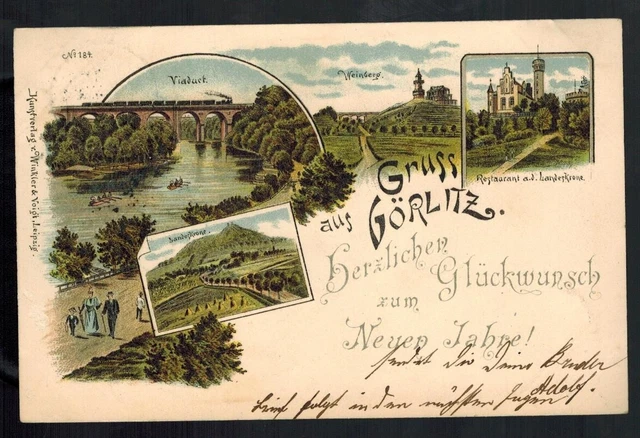 No 184.
Viaduct.
Weinberg.
Restaurant a.d. Landeskrone.
Landeskrone.
Kunstverlag v. Winkler & Voigt, Leipzig.
Gruss
aus GÖRLITZ.
Herzlichen
Glückwunsch
zum
Neuen Jahre!
sendet Dir Dein Bruder
Adolf.
Brief folgt in den nächsten Tagen